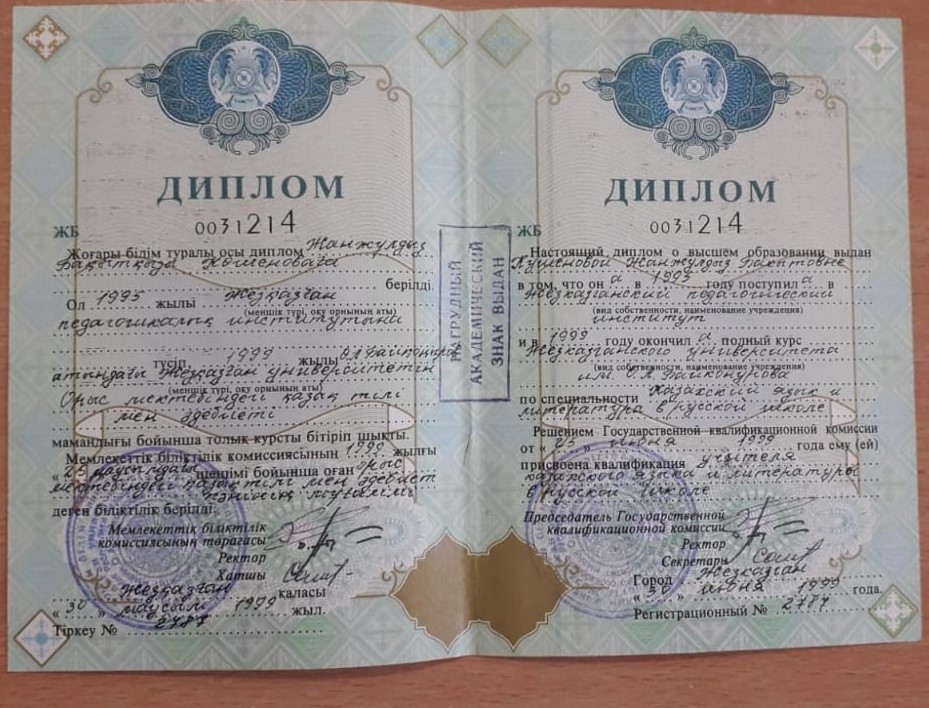 ДИПЛОМ
ЖБ 0031214
Жоғары білім туралы осы диплом Жанжулдыз
Бақытқызы Көшеноваға
берілді.
Ол 1995 жылы Жезқазған
(меншік түрі, оқу орнының аты)
педагогикалық институтына
түсіп 1999 жылы О.А.Байқоңыров
атындағы Жезқазған университетін
(меншік түрі, оқу орнының аты)
Орыс мектебіндегі қазақ тілі
мен әдебиеті
мамандығы бойынша толық курсты бітіріп шықты.
Мемлекеттік біліктілік комиссиясының 1999 жылғы
« 25 » маусымдағы шешімі бойынша оған орыс
мектебіндегі қазақ тілі мен әдебиет
пәнінің мұғалімі
деген біліктілік берілді.
Мемлекеттік біліктілік
комиссиясының төрағасы
Ректор
Хатшы
Жезқазған қаласы
« 30 » маусым 1999 жыл.
Тіркеу № 2787
НАГРУДНЫЙ
АКАДЕМИЧЕСКИЙ
ЗНАК ВЫДАН
ДИПЛОМ
ЖБ 0031214
Настоящий диплом о высшем образовании выдан
Жанжулдыз Бакытовне
в том, что он а в 1995 году поступил а в
Жезказганский педагогический
(вид собственности, наименование учреждения)
институт
и в 1999 году окончил а полный курс
Жезказганского университета
(вид собственности, наименование учреждения)
им. О.А.Байконурова
по специальности Казахский язык и
литература в русской школе
Решением Государственной квалификационной комиссии
от « 25 » июня 1999 года ему (ей)
присвоена квалификация учителя
казахского языка и литературы
в русской школе
Председатель Государственной
квалификационной комиссии
Ректор
Секретарь
Город Жезказган
« 30 » июня 1999 года.
Регистрационный № 2787